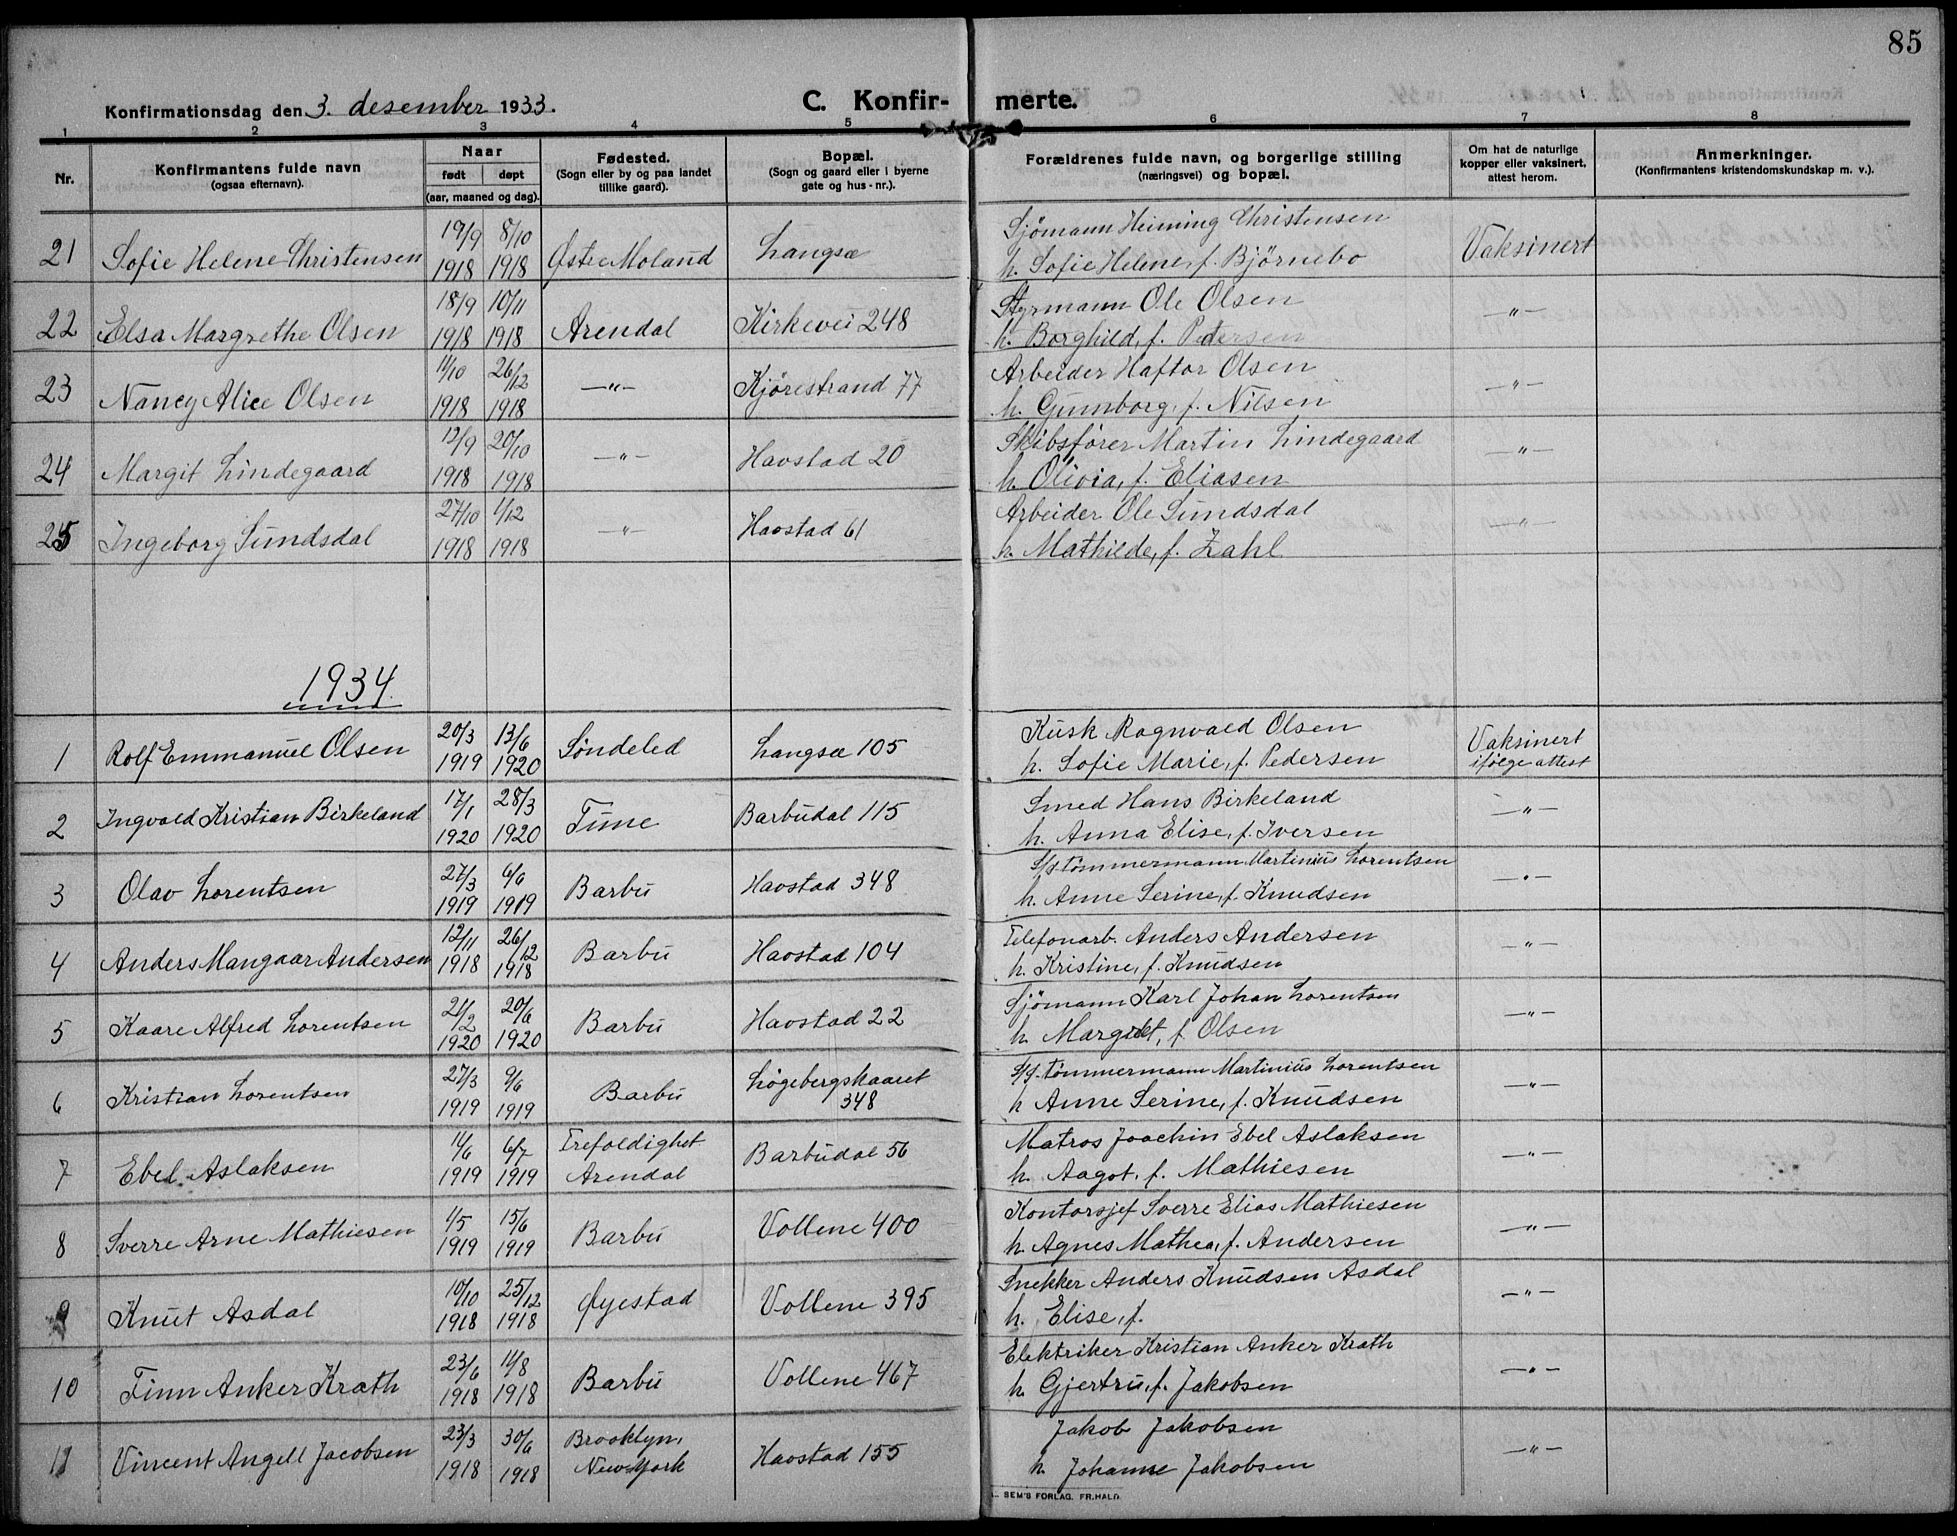 85
Konfirmationsdag den 3. desember 1933.
C. Konfir- merte.
1 2 3 4 5 6 7 8
Nr.
Konfirmantens fulde navn
(ogsaa efternavn).
Naar
født døpt
(aar, maaned og dag).
Fødested.
(Sogn eller by og paa landet
tillike gaard).
Bopæl.
(Sogn og gaard eller i byerne
gate og hus-nr.).
Forældrenes fulde navn, og borgerlige stilling
(næringsvei) og bopæl.
Om hat de naturlige
kopper eller vaksinert,
attest herom.
Anmerkninger.
(Konfirmantens kristendomskundskap m. v.).
19/9 8/10 Sjømann Heiming Christensen
21 Sofie Helene Christensen 1918 1918 Østre Moland Langsæ h. Sofie Helene, f. Bjørnebo Vaksinert
18/9 10/11 Styrmann Ole Olsen
22 Elsa Margrethe Olsen 1918 1918 Arendal Kirkevei 248 h. Borghild, f. Pedersen —"—
11/10 26/12 Arbeider Haftor Olsen
23 Nancy Alice Olsen 1918 1918 —"— Kjørestrand 77 h. Gunnborg, f. Nilsen —"—
12/9 20/10 Skibsfører Martin Lindegaard
24 Margit Lindegaard 1918 1918 —"— Havstad 20 h. Olivia, f. Eliasen —"—
27/10 1/12 Arbeider Ole Sundsdal
25 Ingeborg Sundsdal 1918 1918 —"— Havstad 61 h. Mathilde, f. Zahl —"—
1934.
20/3 13/6 Kusk Ragnvald Olsen Vaksinert
1 Rolf Emmanuel Olsen 1919 1920 Søndeled Langsæ 105 h. Sofie Marie, f. Pedersen ifølge attest
17/1 28/3 Smed Hans Birkeland
2 Ingvald Kristian Birkeland 1920 1920 Tune Barbudal 115 h. Anna Elise, f. Iversen —"—
27/3 6/6 S/S tømmermann Martinius Lorentsen
3 Olav Lorentsen 1919 1919 Barbu Havstad 348 h. Anne Serine, f. Knudsen —"—
12/11 26/12 Telefonarb. Anders Andersen
4 Anders Mangaar Andersen 1918 1918 Barbu Havstad 104 h. Kristine, f. Knudsen —"—
21/2 20/6 Sjømann Karl Johan Lorentsen
5 Kaare Alfred Lorentsen 1920 1920 Barbu Havstad 22 h. Margret, f. Olsen —"—
27/3 9/6 Løgebergskaaret S/S. tømmermann Martinius Lorentsen
6 Kristian Lorentsen 1919 1919 Barbu 348 h Anne Serine, f. Knudsen —"—
11/6 6/7 Trefoldighet Matros Joachin Ebel Aslaksen
7 Ebel Aslaksen 1919 1919 Arendal Barbudal 56 h. Aagot, f. Mathiesen —"—
1/5 15/6 Kontorsjef Sverre Elias Mathiesen
8 Sverre Arne Mathiesen 1919 1919 Barbu Vollene 400 h. Agnes Mathea, f. Andersen —"—
10/10 25/12 Snekker Anders Knudsen Asdal
9 Knut Asdal 1918 1918 Øyestad Vollene 395 h. Elise, f. —"—
23/6 11/8 Elektriker Kristian Anker Krath
10 Finn Anker Krath 1918 1918 Barbu Vollene 467 h. Gjertru, f. Jakobsen —"—
23/3 30/6 Brooklyn, Jakob Jakobsen
11 Vincent Angell Jacobsen 1918 1918 New York Havstad 155 h. Johanne Jakobsen —"—
SEM'S FORLAG. FR.HALD